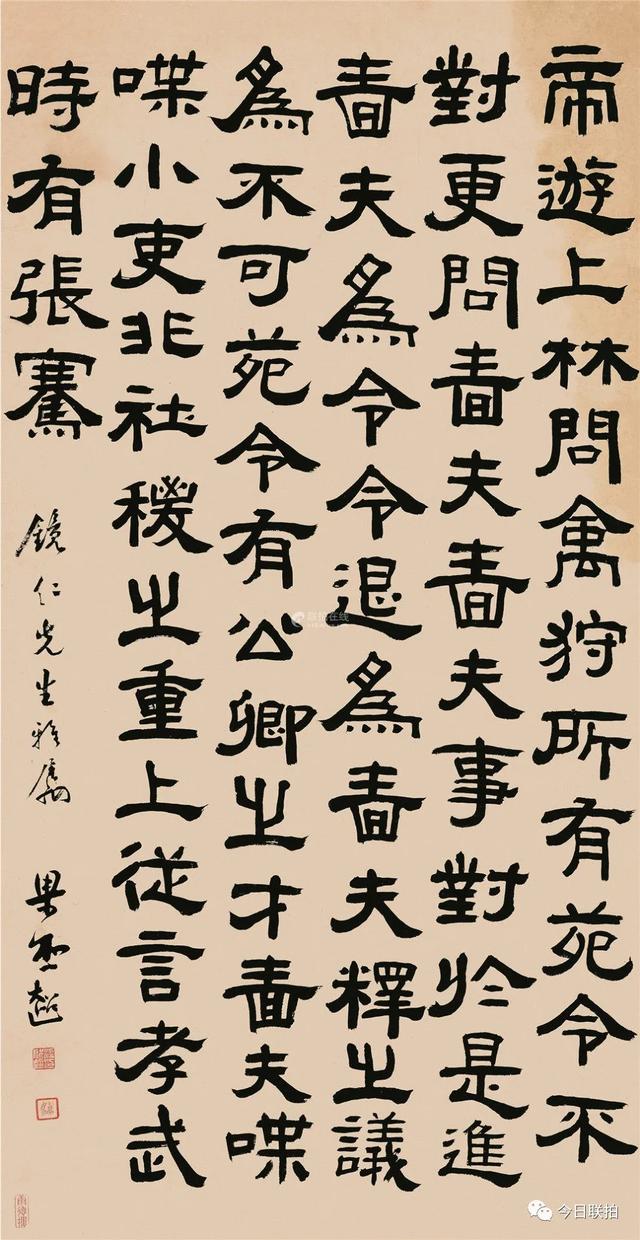 帝遊上林問禽狩所有苑令不
對更問嗇夫嗇夫事對於是進
嗇夫為令令退為嗇夫釋之議
為不可苑令有公卿之才嗇夫喋
喋小吏非社稷之重上從言孝武
時有張騫
鏡仁先生雅屬
梁啓超
联拍在线
今日联拍